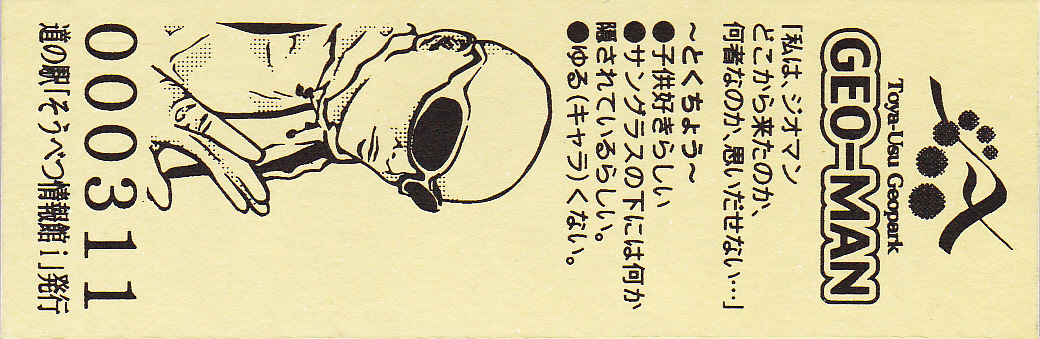 Toya-Usu Geopark
GEO-MAN
「私は、ジオマン
どこから来たのか、
何者なのか、思いだせない…」
～とくちょう～
●子供好きらしい
●サングラスの下には何か
隠されているらしい。
●ゆる(キャラ)くない。
000311
道の駅「そうべつ情報館i」発行